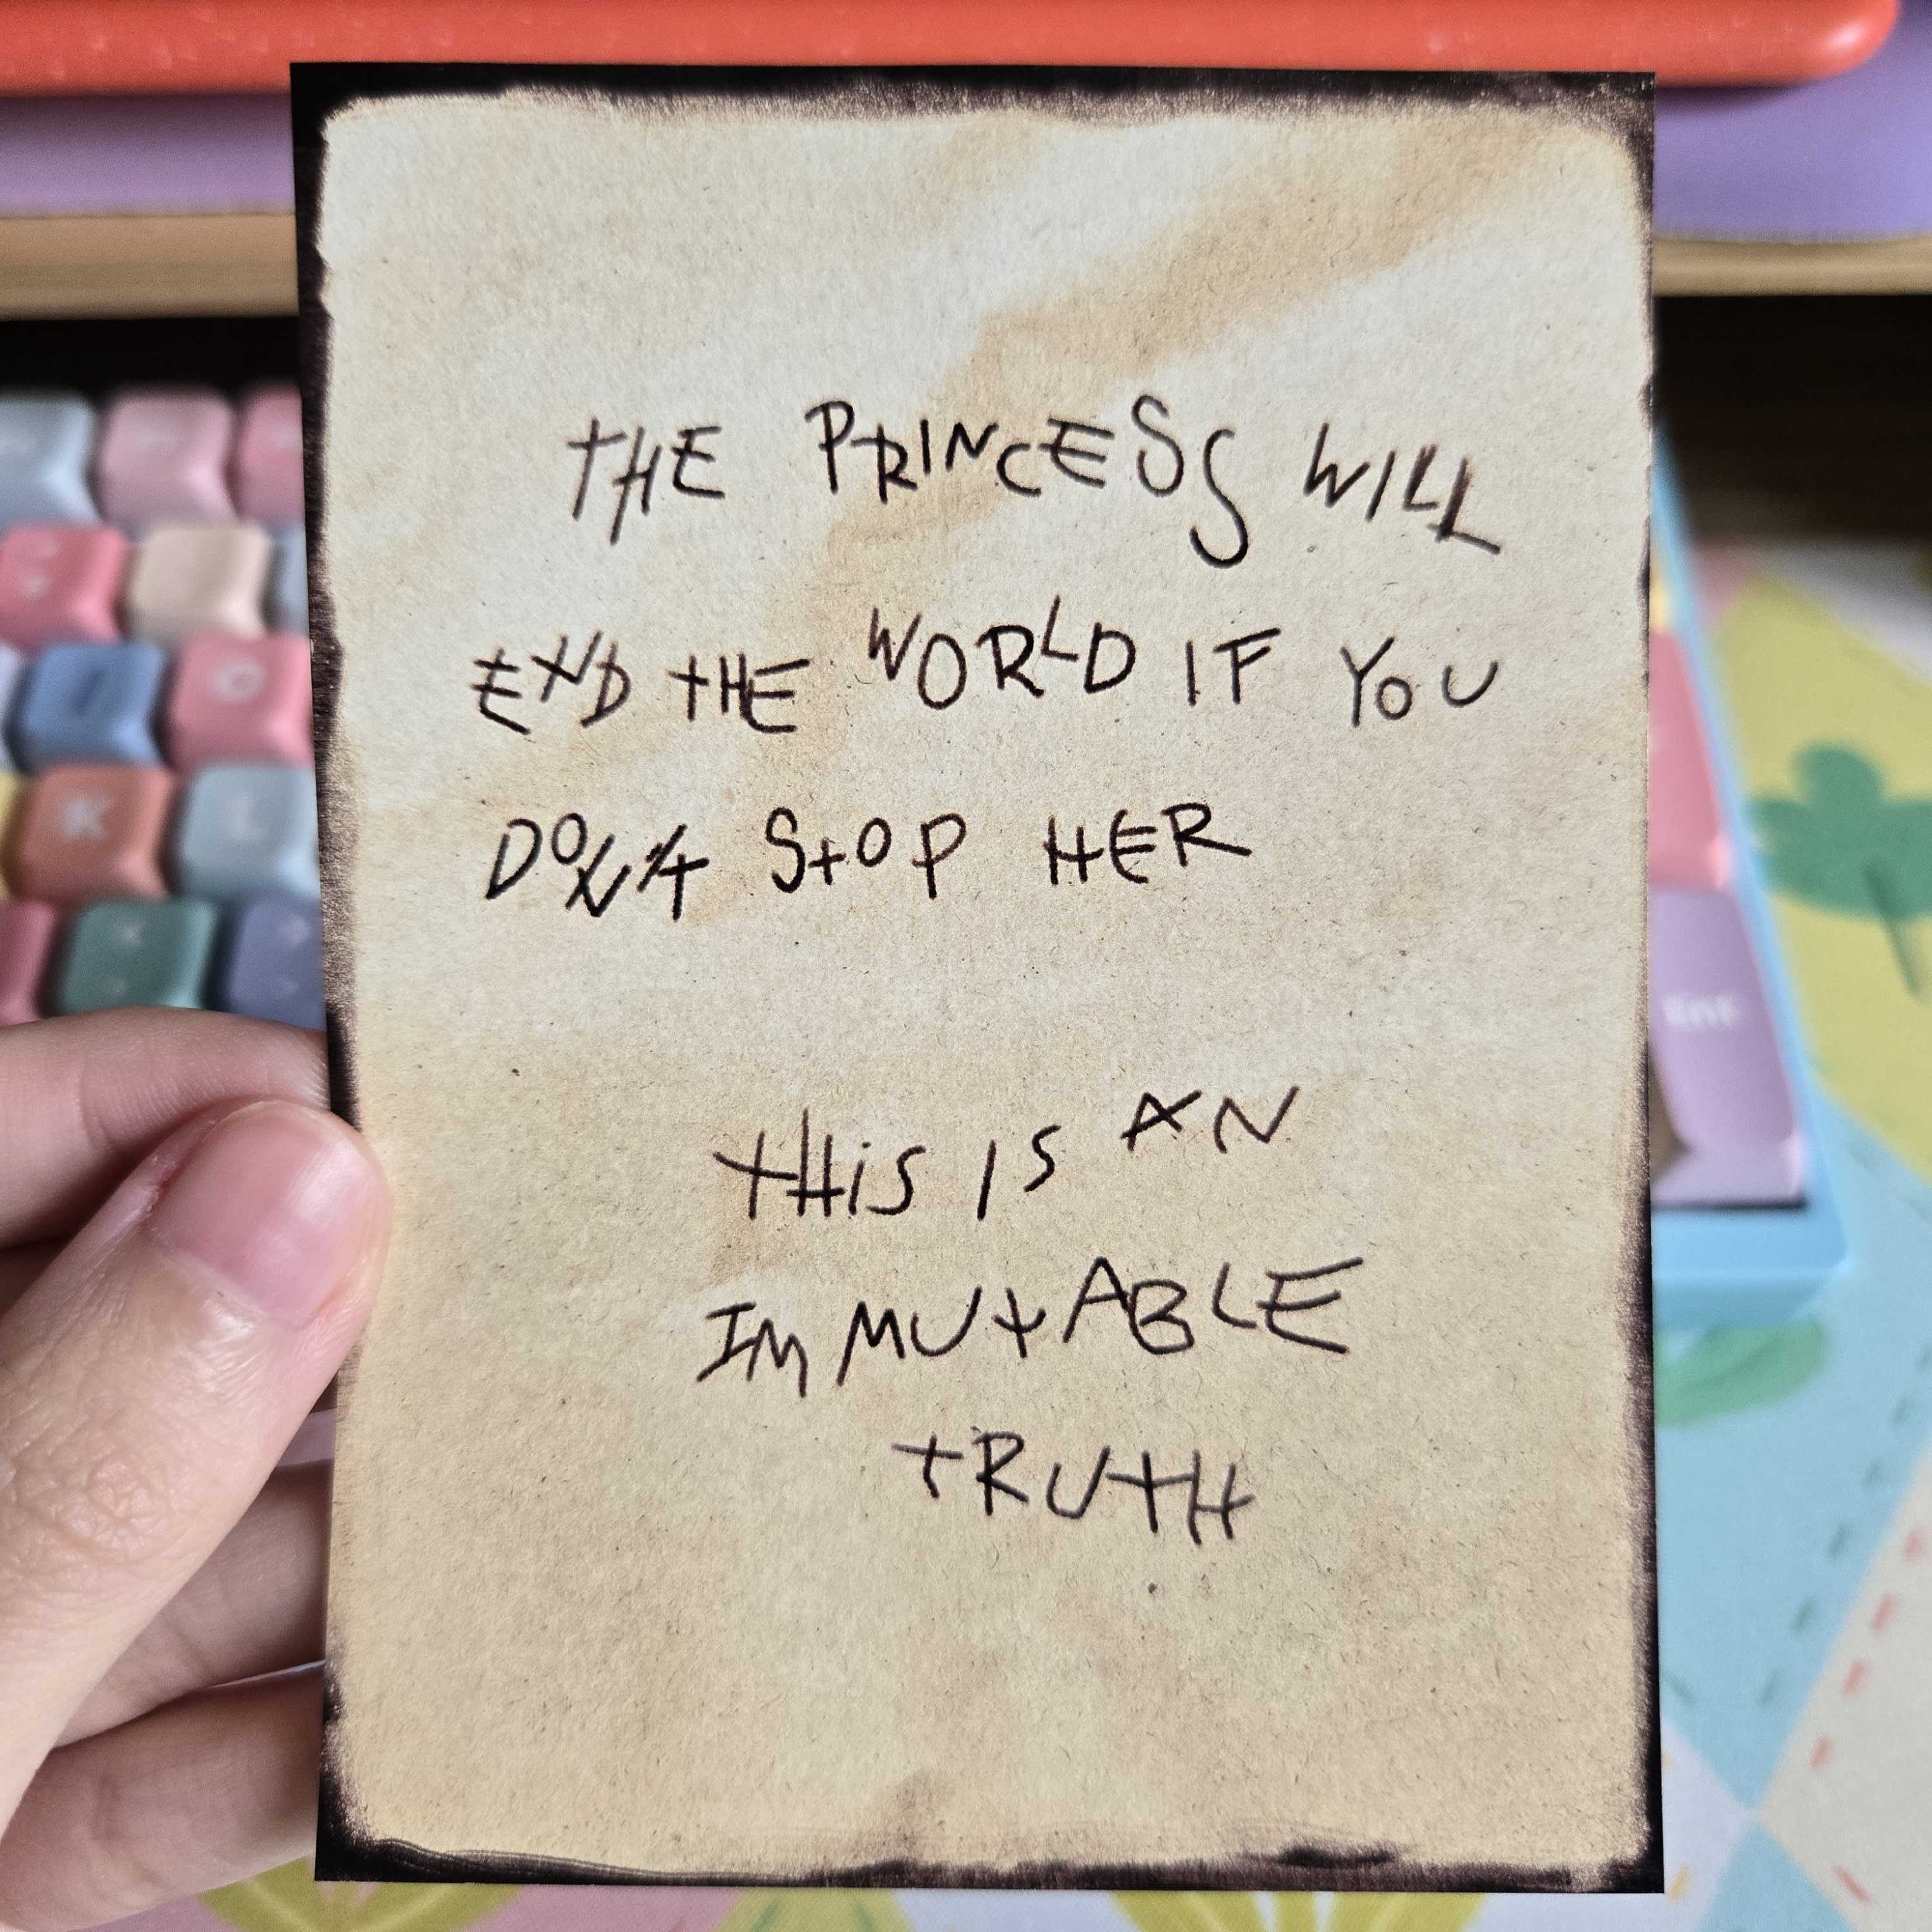 THE PRINCESS WILL
END THE WORLD IF YOU
DON'T STOP HER
THIS IS AN
IMMUTABLE
TRUTH
K